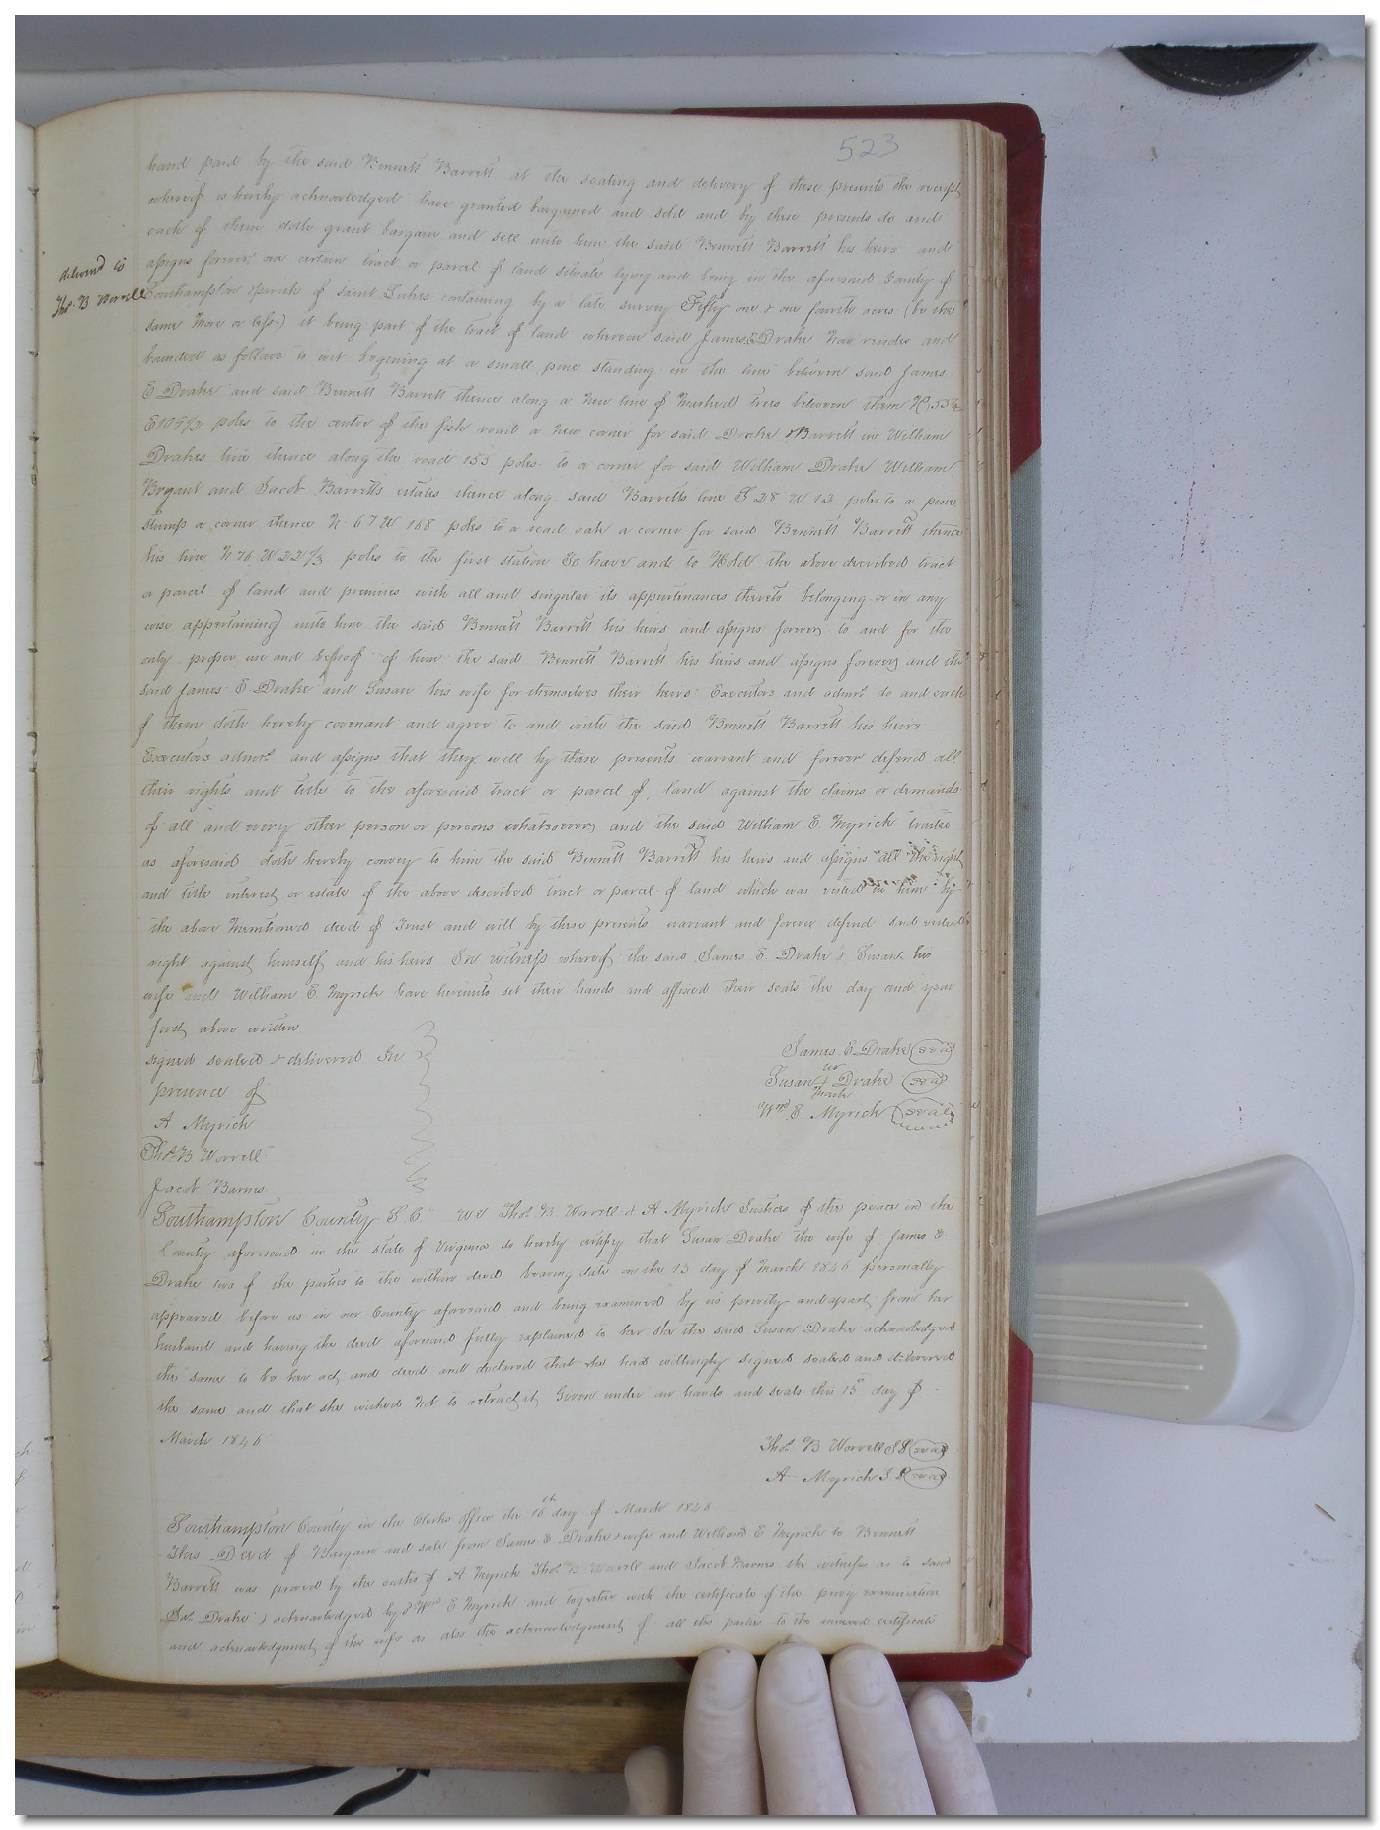 523
hand paid by the said Bennett Barrett at the sealing and delivery of these presents the receipt
whereof is hereby acknowledged have granted bargained and sold and by these presents do and
each of them doth grant bargain and sell unto him the said Bennett Barrett his heirs and
assigns forever one certain tract or parcel of land situate lying and being in the aforesaid County of
delivered to
Tho. B Worrell
Southampton Parish of Saint Lukes containing by a late survey Fifty one & one fourth acres (be the
same More or less) it being part of the tract of land whereon said James E Drake Now resides and
bounded as follows to wit begening at a small pine standing in the line between said James
E Drake and said Bennett Barrett thence along a New line of Marked trees between them
poles to the center of the fish road a New corner for said Drake & Barrett in William
Drakes line thence along the road 155 poles to a corner for said William Drake William
Bryant and Jacob Barretts estates thence along said Barretts line S 28 W 12 poles to a pine
stump a corner thence N 67 W 168 poles to a read oak a corner for said Bennett Barrett thence
his line N 76 W 22 1/3 poles to the first station To have and to Hold the above described tract
a parcel of land and premises with all and singular its appurtenances thereto belonging or in any
wise appertaining unto him the said Bennett Barrett his heirs and assigns forever to and for the
only proper use and behoof of him the said Bennett Barrett his heirs and assigns forever and the
said James E Drake and Susan his wife for themselves their heirs Executors and admrs do and each
of them doth hereby covenant and agree to and with the said Bennett Barrett his heirs
Executors admrs and assigns that they will by these presents warrant and forever defend all
their rights and title to the aforesaid tract or parcel of land against the claims or demands
of all and every other person or persons whatsoever and the said William E. Myrick trustee
as aforesaid doth hereby convey to him the said Bennett Barrett his heirs and assigns all the right
and title interest or estate of the above described tract or parcel of land which was vested in him by
the above Mentioned deed of Trust and will by these presents warrant and forever defend said vested
right against himself and his heirs In witness whereof the said James E. Drake & Susan his
wife and William E. Myrick have hereunto set their hands and affixed their seals the day and year
first above written
signed sealed & delivered In
presence of
A Myrick
Tho. B Worrell
Jacob Barnes
James. E Drake (seal)
her
Susan + Drake (seal)
mark
Wm E Myrick (seal)
Southampton County S C We Tho. B Worrell & A Myrick Justices of the peace in the
County aforesaid in the state of Virginia do hereby certify that Susan Drake the wife of James E
Drake two of the parties to the within deed bearing date on the 13 day of March 1846 personally
appeared before us in our County aforesaid and being examined by us privily and apart from her
husband and having the deed aforesaid fully explained to her she the said Susan Drake acknowledged
the same to be her act and deed and declared that she had willingly signed sealed and delivered
the same and that she wished Not to retract it Given under our hands and seals this 13th day of
March 1846
Tho. B Worrell J P (seal)
A Myrick J P (seal)
Southampton County in the Clerks office the 16th day of March 1846
This Deed of Bargain and sale from James E Drake & wife and William E Myrick to Bennett
Barrett was proved by the oaths of A Myrick Tho. B Worrell and Jacob Barnes the witnesses as to said
Jas. Drake & acknowledged by Wm E Myrick and together with the certificate of the privy examination
and acknowledgment of the wife as also the acknowledgment of all the parties to the annexed certificate